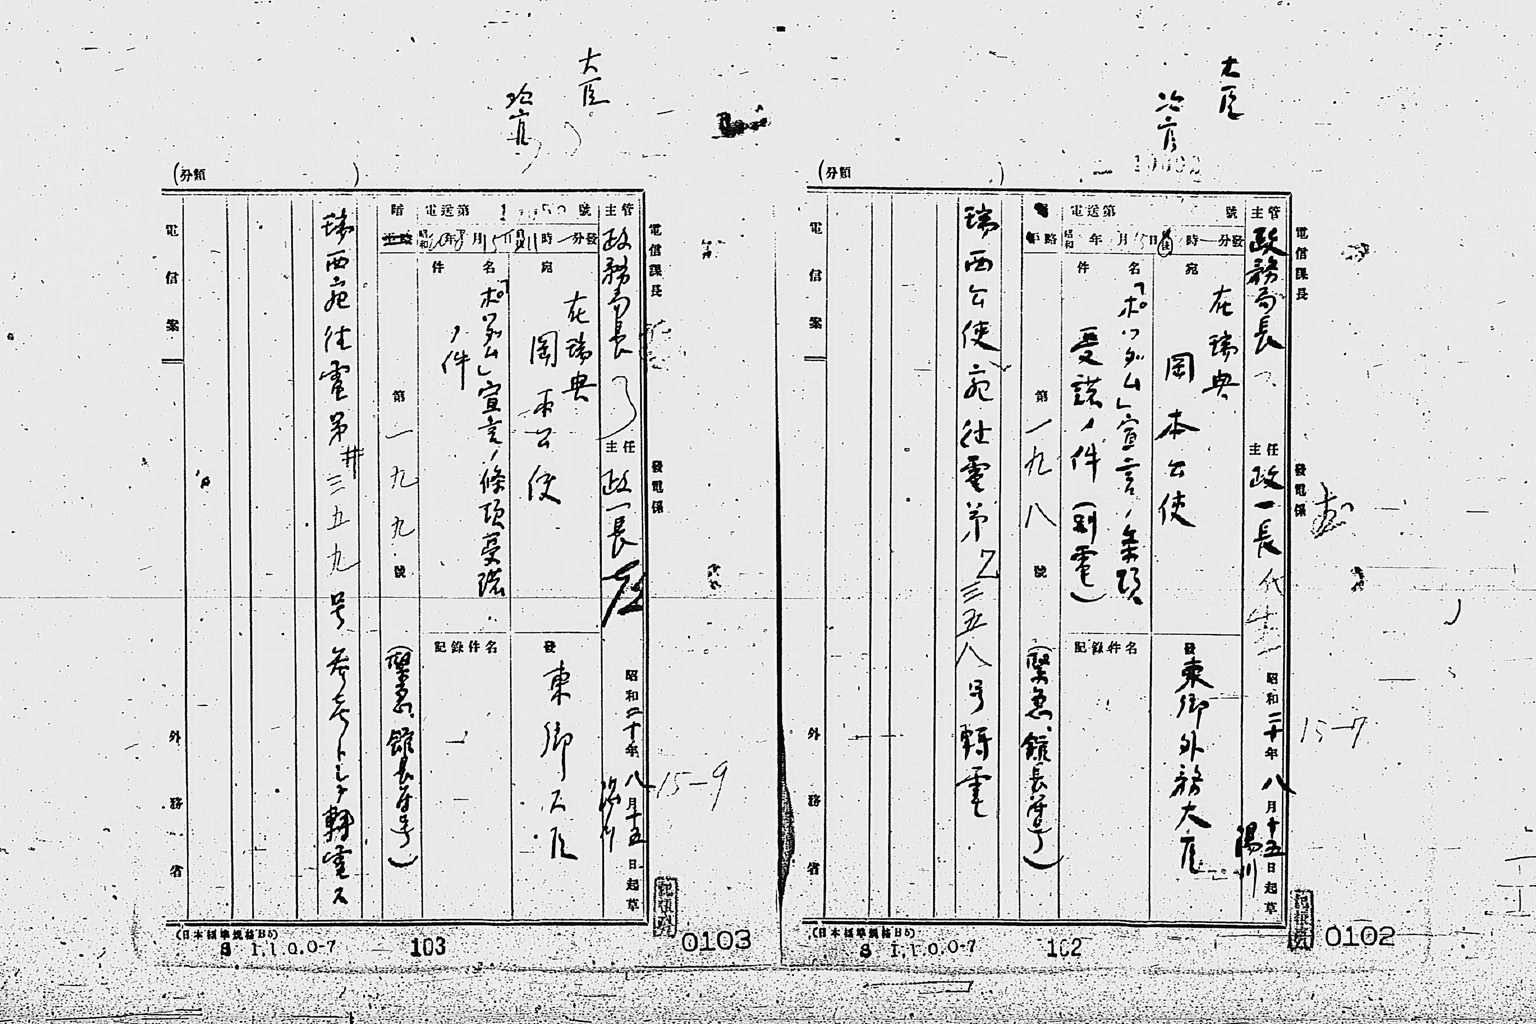 大臣
次官
(分類 )
電信課長
發電係
主管 政務局長
主任 政一長
昭和二十年八月十五日起草
電送第 號
昭和 年 月15日 時 分發
宛 在瑞典
岡本公使
發 東郷外務大臣
件名 「ポツダム」宣言ノ条項
受諾ノ件(別電)
記錄件名
第一九八號 (緊急、館長符号)
瑞西公使宛往電第Z三五八号轉電
電信案 外務省
15-7
(日本標準規格B5)
S 1.1.0.0-7
102
0102
大臣
次官
(分類 )
電信課長
發電係
主管 政務局長
主任 政一長
昭和二十年八月十五日起草
暗 電送第 號
昭和20年8月15日 11時 分發
宛 在瑞典
岡本公使
發 東郷大臣
件名 「ポツダム」宣言ノ條項受諾
ノ件
記錄件名
第一九九號 (緊急、館長符号)
瑞西宛往電第#三五九号参考トシテ轉電ス
電信案 外務省
15-9
(日本標準規格B5)
S 1.1.0.0-7
103
0103